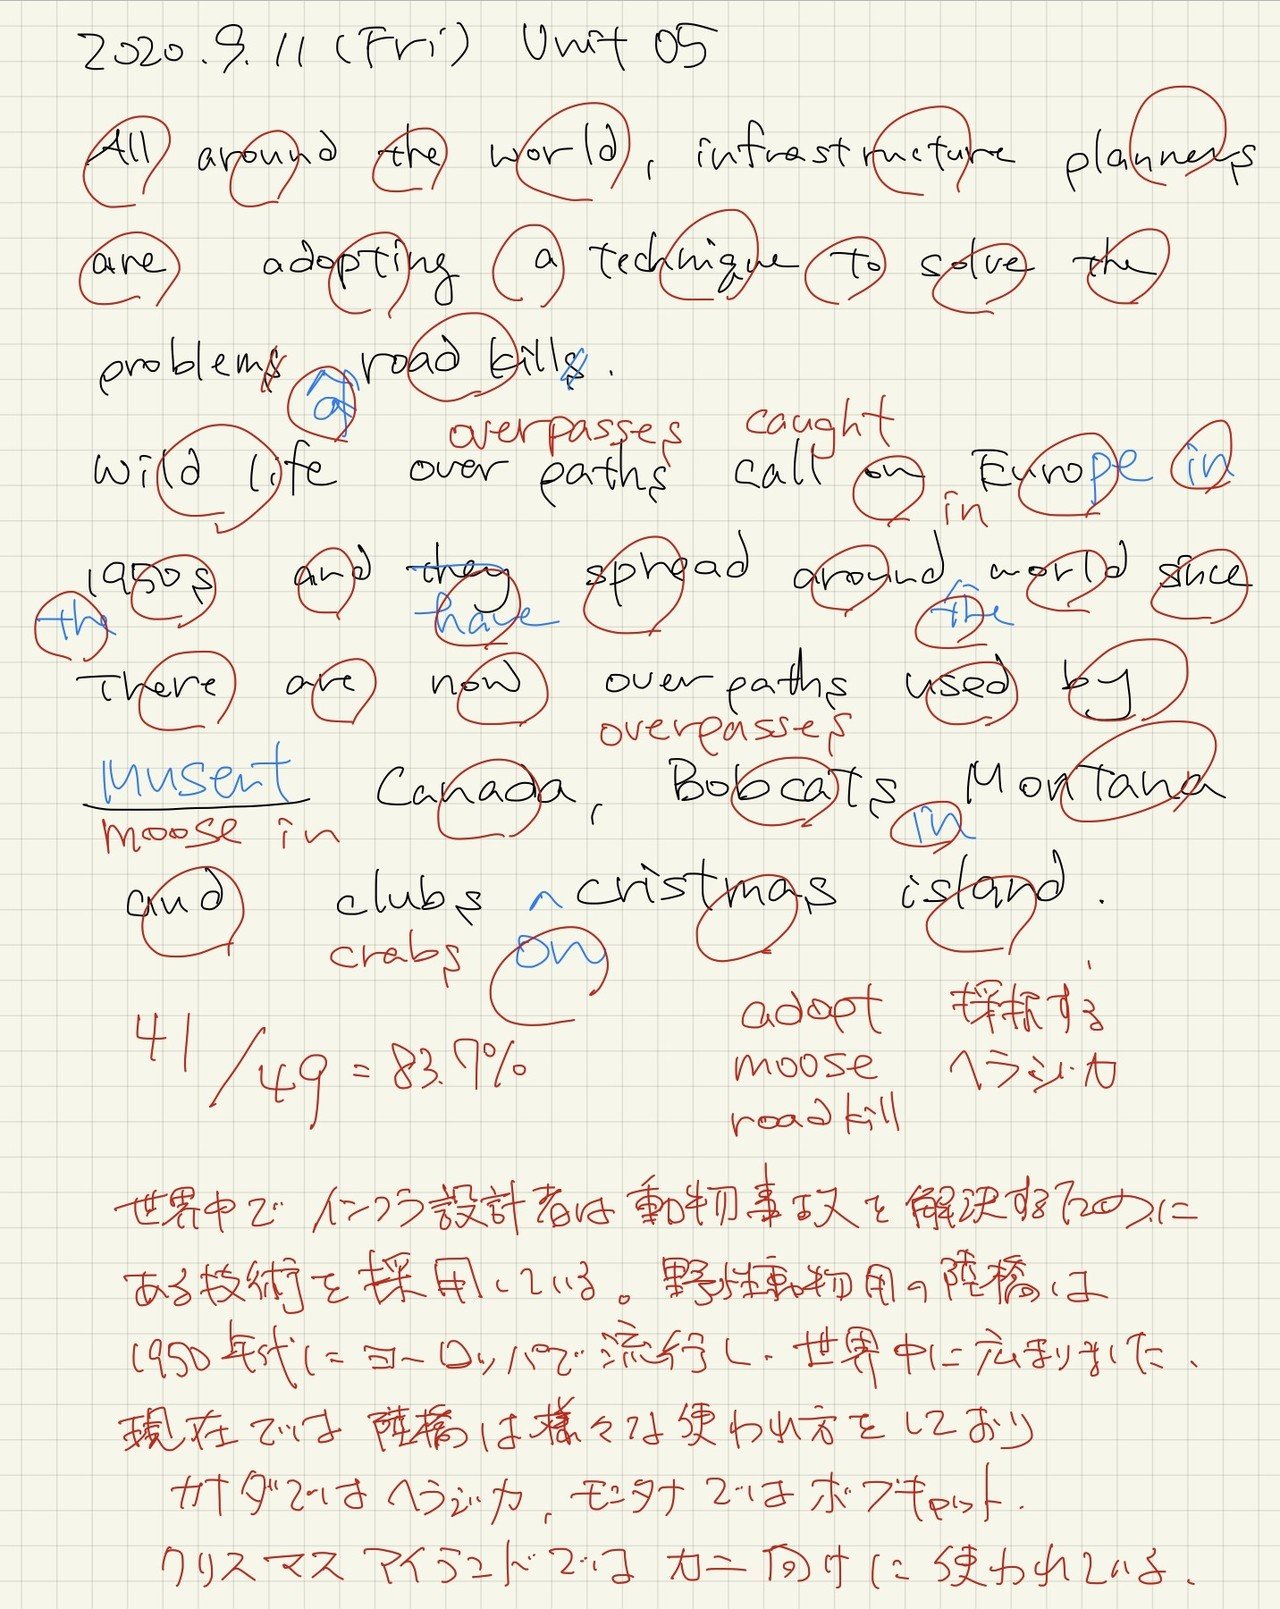 2020.9.11 (Fri) Unit 05
All around the world, infrastructure planners
are adopting a technique to solve the
problems road kills.
of
overpasses caught
wild life over paths call on Europe in
in
1950s and they spread around world since
the have the
There are now over paths used by
overpasses
Musent Canada, Bobcats Montana
moose in in
and clubs cristmas island.
crabs on
41/49 = 83.7%
adopt 採択する
moose ヘラジカ
roadkill
世界中でインフラ設計者は動物事故を解決するために
ある技術を採用している。野性動物用の陸橋は
1950年代にヨーロッパで流行し、世界中に広まりました、
現在では陸橋は様々な使われ方をしており
カナダではヘラジカ、モンタナではボブキャット、
クリスマスアイランドではカニ向けに使われている、